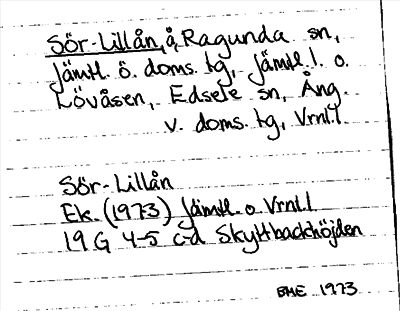 Sör-Lillån, å, Ragunda sn,
Jämtl. ö. doms. tg, Jämtl. l. o.
Lövåsen, Edsele sn, Ång.
v. doms. tg, Vrnl. l
Sör-Lillån
Ek. (1973) Jämtl. o Vrnl. l
19 G 4-5 c-d Skyttbackhöjden
BHE 1973